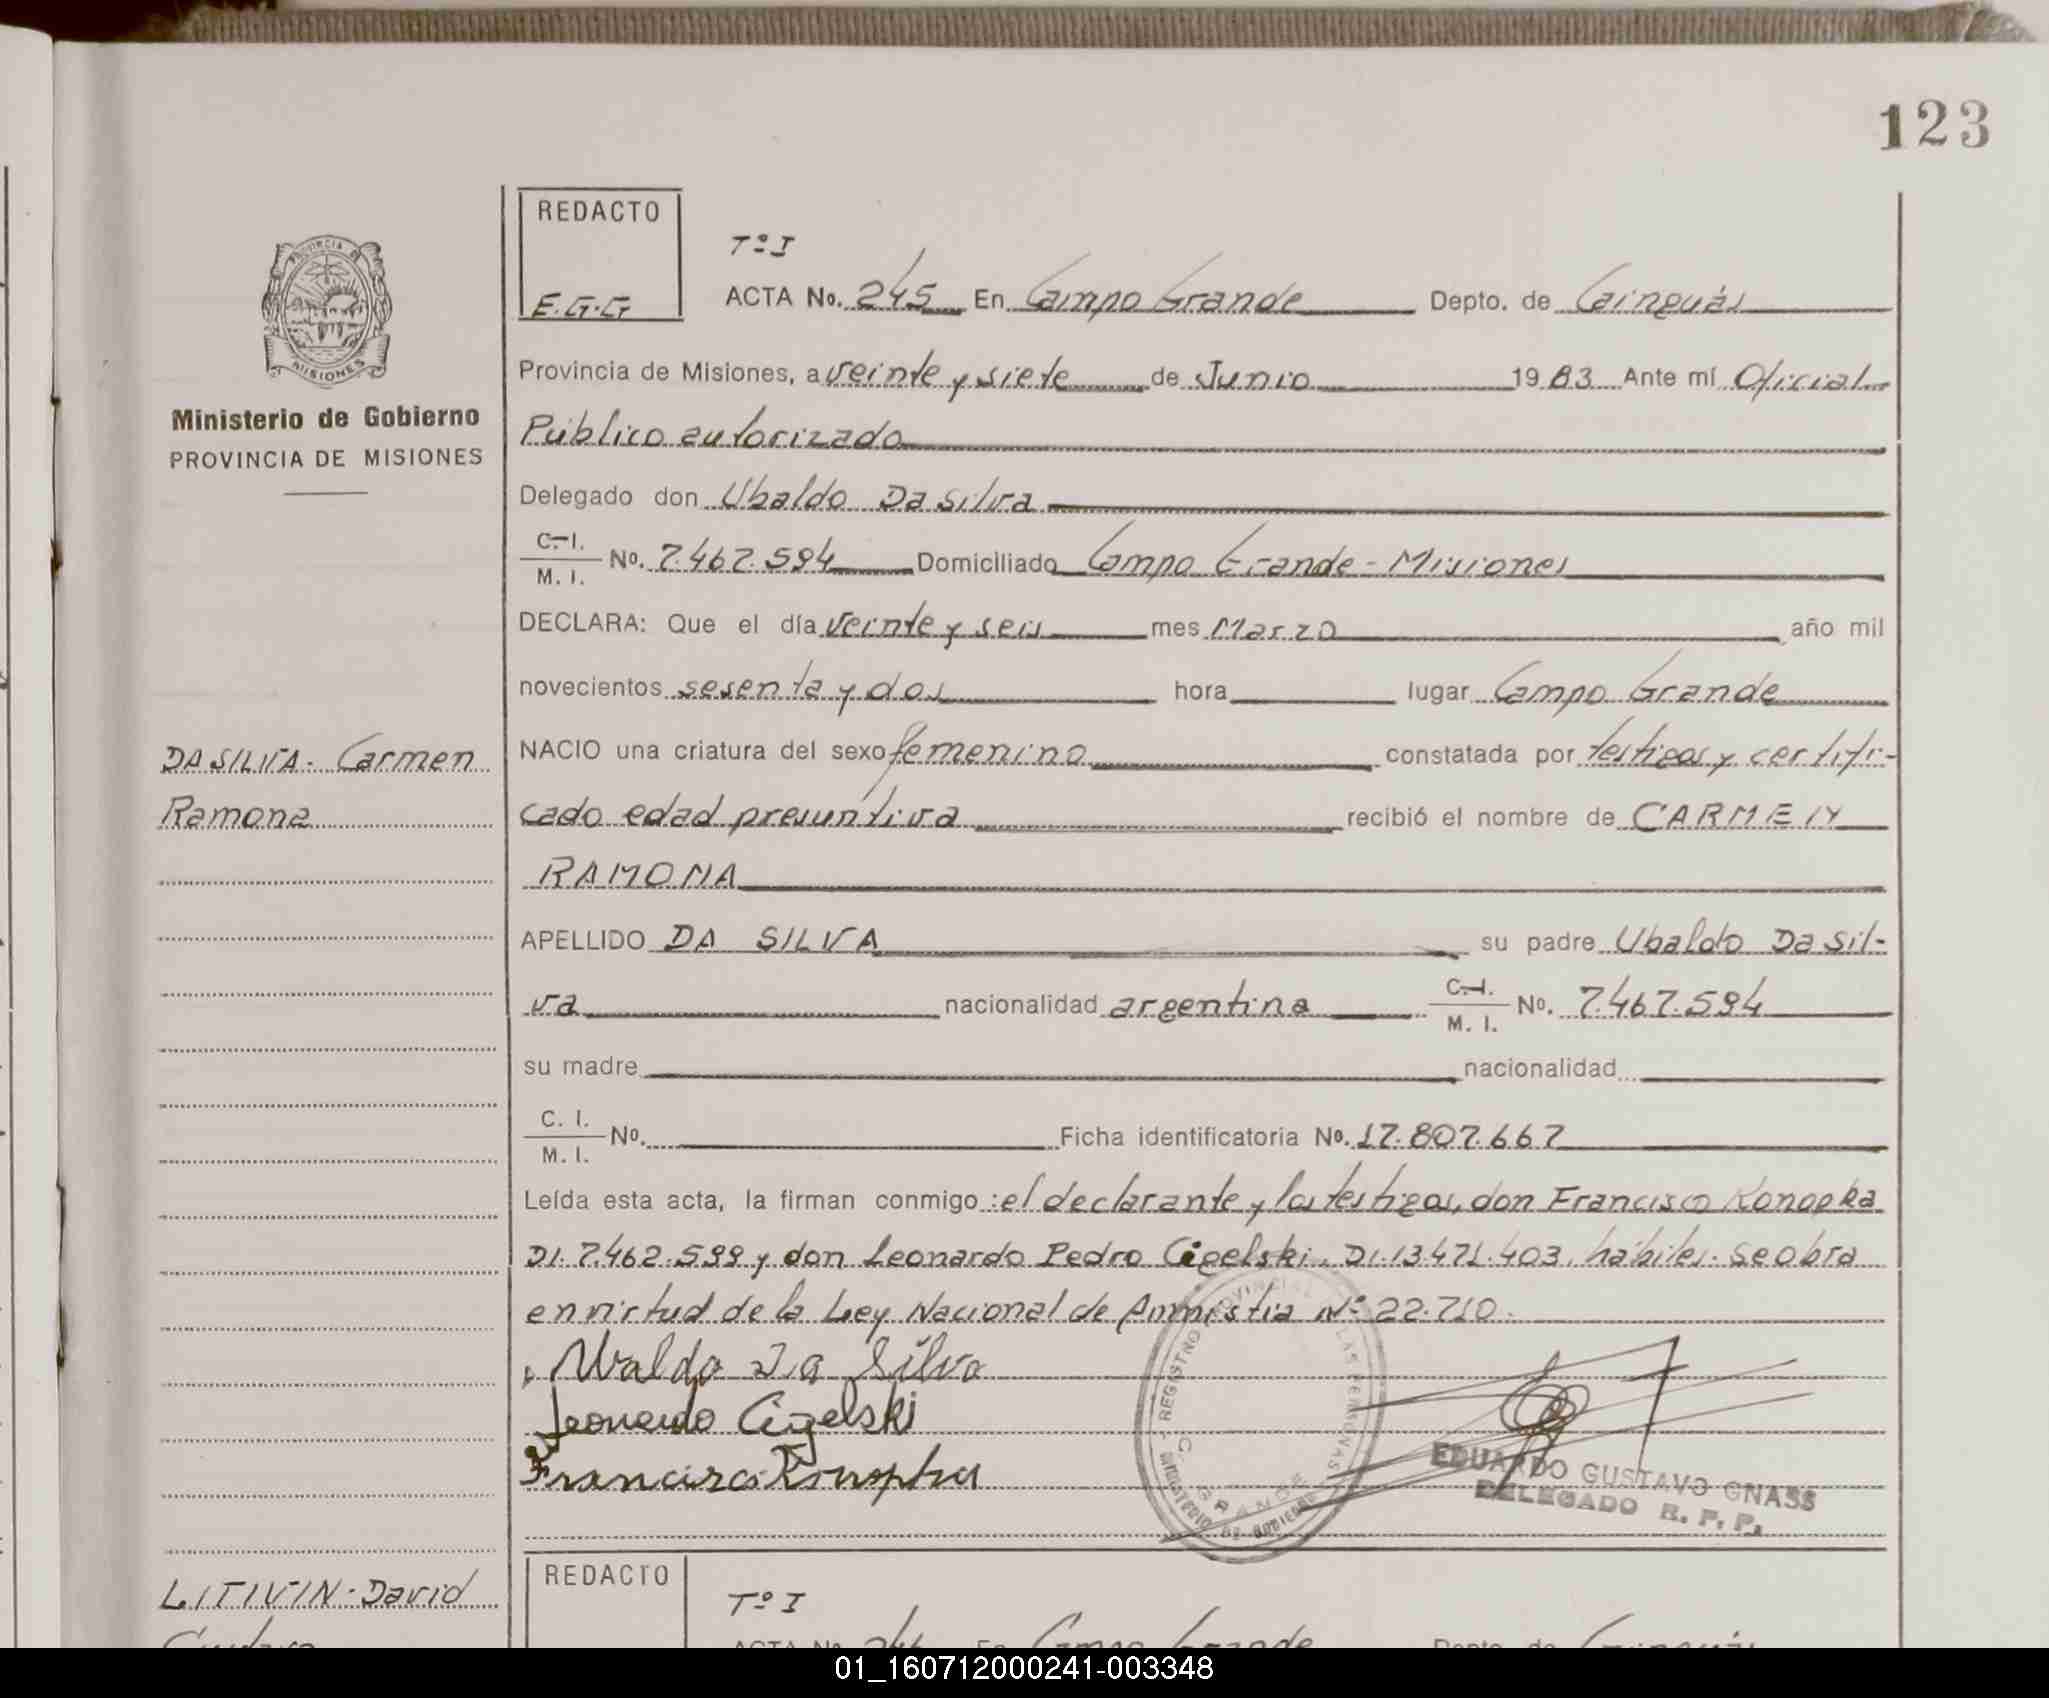 123
REDACTO
E.G.G
Tº I
ACTA No. 245 En Campo Grande Depto. de Cainguás
PROVINCIA DE MISIONES
Provincia de Misiones, a veinte y siete de Junio 1983 Ante mí Oficial
Ministerio de Gobierno
PROVINCIA DE MISIONES
Público autorizado
Delegado don Ubaldo Da Silva
C. I. M. I. No. 7.467.594 Domiciliado Campo Grande - Misiones
DECLARA: Que el día veinte y seis mes Marzo año mil
novecientos sesenta y dos hora lugar Campo Grande
DA SILVA. Carmen
Ramona
NACIO una criatura del sexo femenino constatada por testigos y certifi-
cado edad presuntiva recibió el nombre de CARMEN
RAMONA
APELLIDO DA SILVA su padre Ubaldo Da Sil-
va nacionalidad argentina C. I. M. I. No. 7.467.594
su madre nacionalidad
C. I. M. I. No. Ficha identificatoria No. 17.807.667
Leída esta acta, la firman conmigo: el declarante y los testigos, don Francisco Konopka
DI. 7.462.599 y don Leonardo Pedro Cigelski. DI. 13.471.403, hábiles. Se obra
en virtud de la Ley Nacional de Amnistia Nº 22.710.
Ubaldo Da Silva
Leonardo Cigelski
Francisco Konopka
REGISTRO PROVINCIAL DE LAS PERSONAS
C. GRANDE
MINISTERIO DE GOBIERNO
EDUARDO GUSTAVO GNASS
DELEGADO R. P. P.
LITIVIN. David
Gustavo
REDACTO
Tº I
ACTA No. 246 En Campo Grande Depto. de Cainguás
01_160712000241-003348